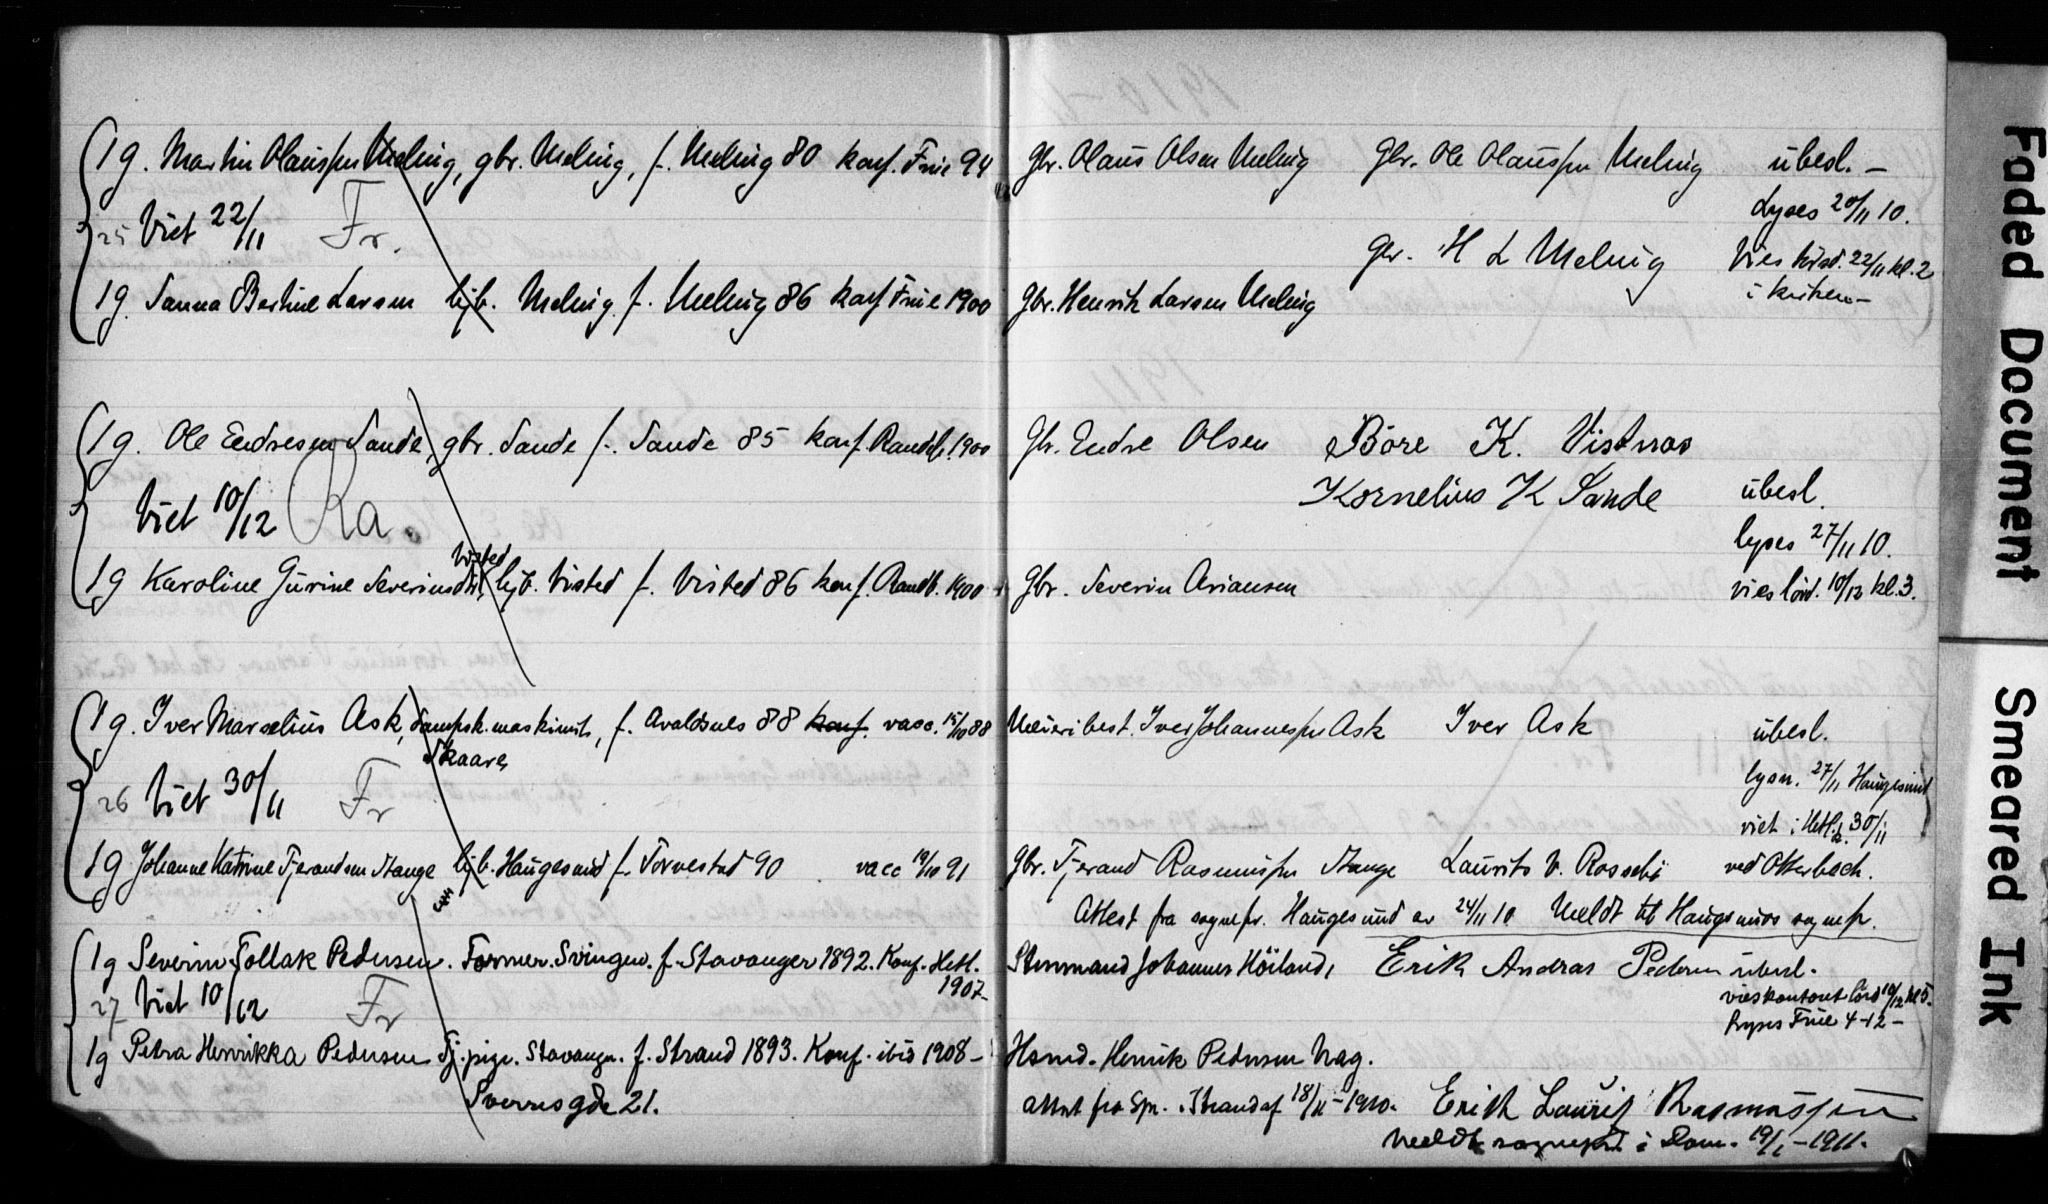 1 g. Martin Olaussen Meling, gbr. Meling, f. Meling 80 konf. Frue 94
25 Viet 22/11 Fr.
1 g. Sanna Bertine Larsen hjb. Meling f. Meling 86 konf Frue 1900
1 g. Ole Endresen Sande, gbr. Sande f. Sande 85 konf. Randb. 1900
Viet 10/12 Ra.
Visted
1 g Karoline Gurine Severinsdtr. hjb. Visted f. Visted 86 konf. Randb. 1900
1 g. Iver Marselius Ask, dampsk.maskinist, f. Avaldsnes 88 konf. vacc. 15/10 88
Skaare
26 Viet 30/11 Fr
1 g Johanne Katrine Tjerandsen Stange hjb. Haugesund f. Torvestad 90 vacc 19/10 91
1 g Severin Tollak Pedersen. Former. Svingev. f. Stavanger 1892. Konf. Hetl.
1907-
27 Viet 10/12 Fr
1 g Petra Henrikka Pedersen Tj. pige. Stavanger. f. Strand 1893. Konf. ibid 1908-
Sverresgde 21.
1910
Gbr. Olaus Olsen Meling Gbr. Ole Olaussen Meling ubesl. -
Lyses 20/11 10.
Gbr. H L Meling Vies tirsd. 22/11 kl. 2
i kirken-
Gbr. Henrik Larsen Meling
1911
Gbr. Endre Olsen Børe K. Vistnæs
Kornelius K Sande ubesl.
lyses 27/11 10.
Gbr. Severin Ariansen vies lørd. 10/12 kl. 3.
Meieribest. Iver Johannessen Ask Iver Ask ubesl.
lysn. 27/11 Haugesund
viet i Hetl. 30/11
Gbr. Tjerand Rasmussen Stange Laurits V. Rossebø ved Otterbech.
Attest fra sognepr. Haugesund av 24/11 10 Meldt til Haugesunds sognepr.
Stenmand Johannes Höiland, Erik Andras Pedersen ubesl.
vies kontoret lörd 10/12 kl 5.
Lyses Frue 4-12-
Hsmd. Henrik Pedersen Vag.
attest fra Spr. i Strand af 18/11-1910. Erik Lauris Rasmussen
Meldt sogneprst i Dom. 19/1-1911.
Faded Document
Smeared Ink